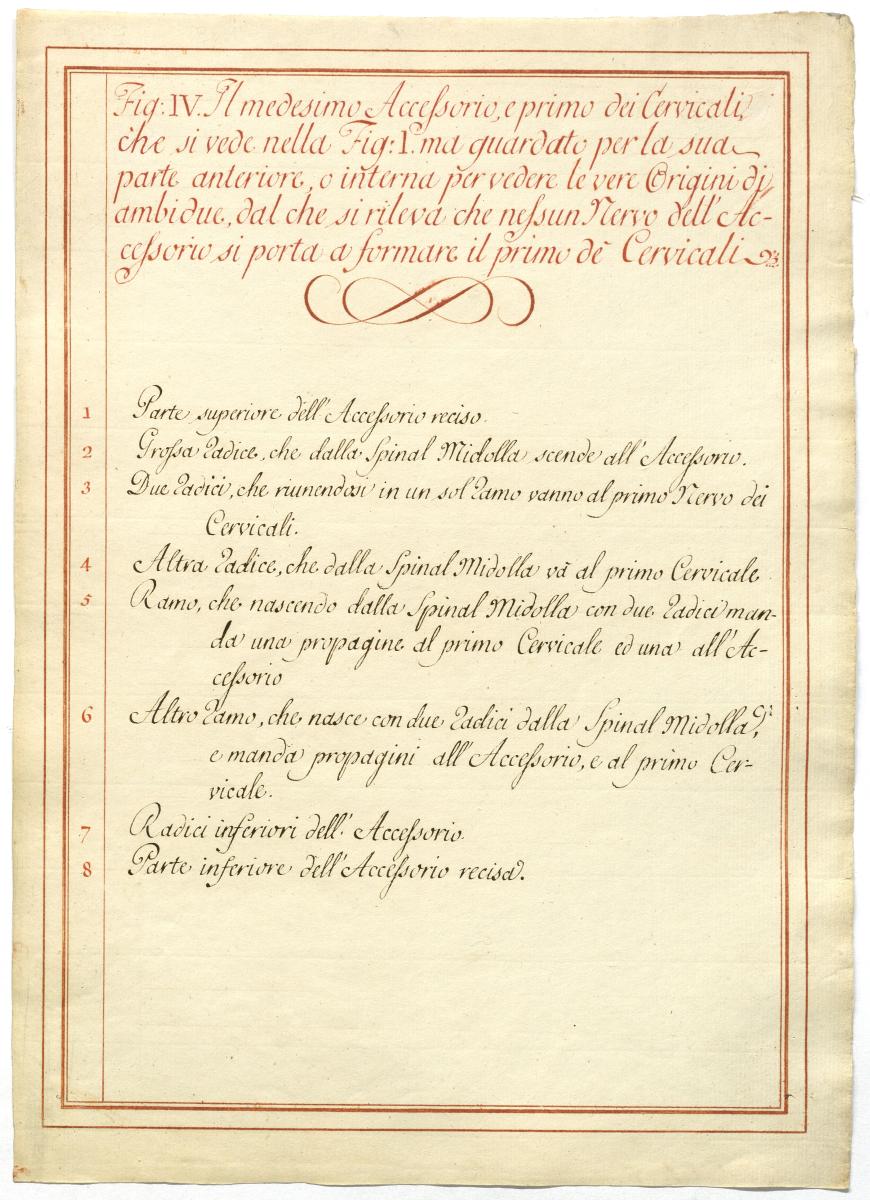 Fig: IV. Il medesimo Accessorio, e primo dei Cervicali,
che si vede nella Fig: I. ma guardato per la sua
parte anteriore, o interna per vedere le vere Origini di
ambidue, dal che si rileva che nessun Nervo dell'Ac-
cessorio si porta a formare il primo de' Cervicali
1 Parte superiore dell'Accessorio reciso.
2 Grossa Radice, che dalla Spinal Midolla scende all'Accessorio.
3 Due Radici, che riunendosi in un sol Ramo vanno al primo Nervo dei
Cervicali.
4 Altra Radice, che dalla Spinal Midolla và al primo Cervicale.
5 Ramo, che nascendo dalla Spinal Midolla con due Radici man-
da una propagine al primo Cervicale ed una all'Ac-
cessorio
6 Altro Ramo, che nasce con due Radici dalla Spinal Midolla,
e manda propagini all'Accessorio, e al primo Cer-
vicale.
7 Radici inferiori dell'Accessorio.
8 Parte inferiore dell'Accessorio recisa.